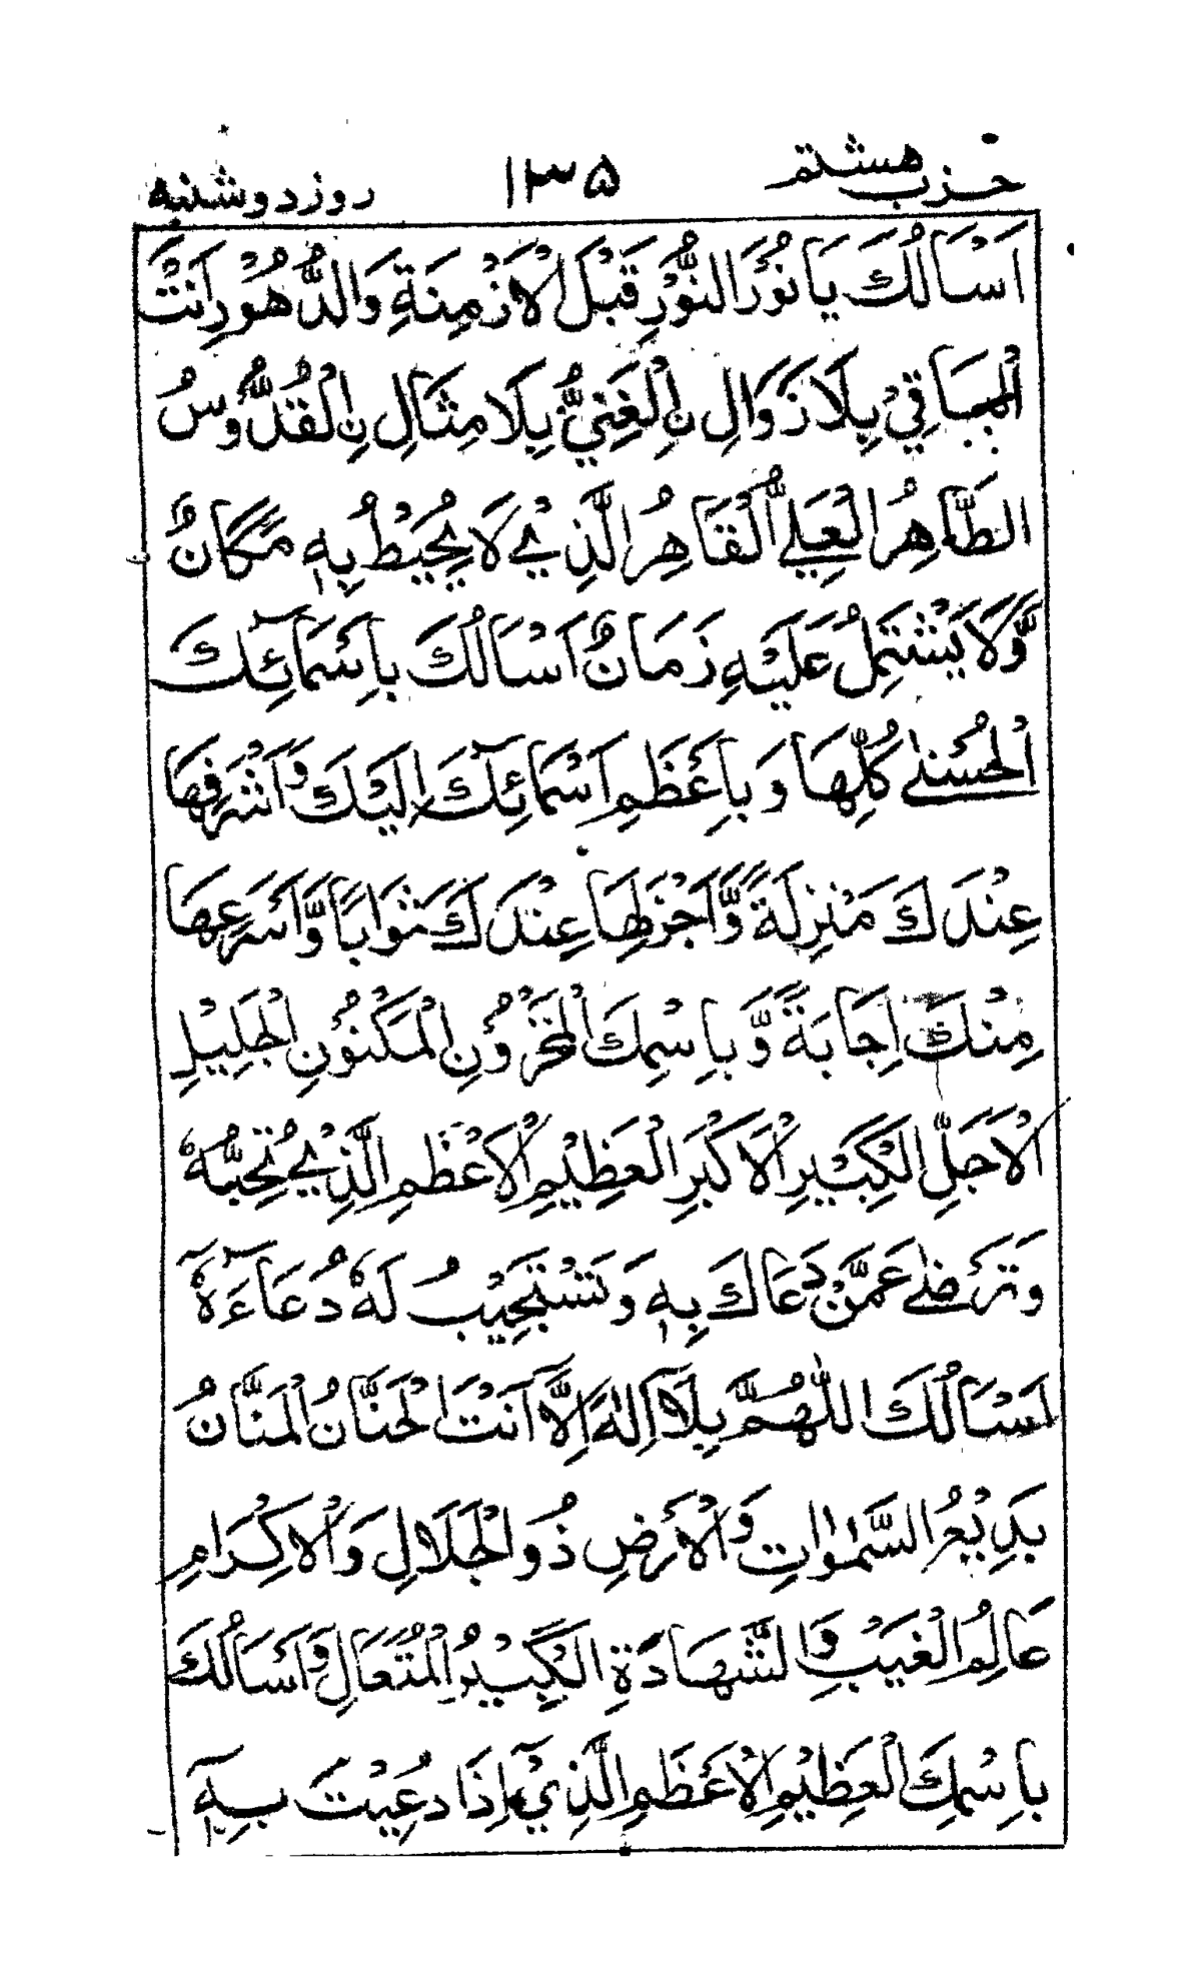 حزب هشتم ۱۳۵ روز دوشنبه
اَسْأَلُكَ يَا نُوْرَ النُّوْرِ قَبْلَ الْاَزْمِنَةِ وَالدُّهُوْرِ اَنْتَ
الْبَاقِيْ بِلَا زَوَالِ نِ الْغَنِيُّ بِلَا مِثَالِ نِ الْقُدُّوْسُ
الطَّاهِرُ الْعَلِيُّ الْقَاهِرُ الَّذِيْ لَا يُحِيْطُ بِهٖ مَكَانٌ
وَّلَا يَشْتَمِلُ عَلَيْهِ زَمَانٌ اَسْأَلُكَ بِاَسْمَآئِكَ
الْحُسْنٰى كُلِّهَا وَبِاَعْظَمِ اَسْمَآئِكَ اِلَيْكَ وَاَشْرَفِهَا
عِنْدَكَ مَنْزِلَةً وَّاَجْزَلِهَا عِنْدَكَ ثَوَابًا وَّاَسْرَعِهَا
مِنْكَ اِجَابَةً وَّبِاسْمِكَ الْمَخْزُوْنِ الْمَكْنُوْنِ الْجَلِيْلِ
الْاَجَلِّ الْكَبِيْرِ الْاَكْبَرِ الْعَظِيْمِ الْاَعْظَمِ الَّذِيْ تُحِبُّهٗ
وَتَرْضٰى عَمَّنْ دَعَاكَ بِهٖ وَتَسْتَجِيْبُ لَهٗ دُعَآءَهٗ
اَسْأَلُكَ اللّٰهُمَّ بِلَآ اِلٰهَ اِلَّآ اَنْتَ الْحَنَّانُ الْمَنَّانُ
بَدِيْعُ السَّمٰوٰاتِ وَالْاَرْضِ ذُو الْجَلَالِ وَالْاِكْرَامِ
عَالِمُ الْغَيْبِ وَالشَّهَادَةِ الْكَبِيْرُ الْمُتَعَالِ وَاَسْأَلُكَ
بِاسْمِكَ الْعَظِيْمِ الْاَعْظَمِ الَّذِيْٓ اِذَا دُعِيْتَ بِهٖٓ